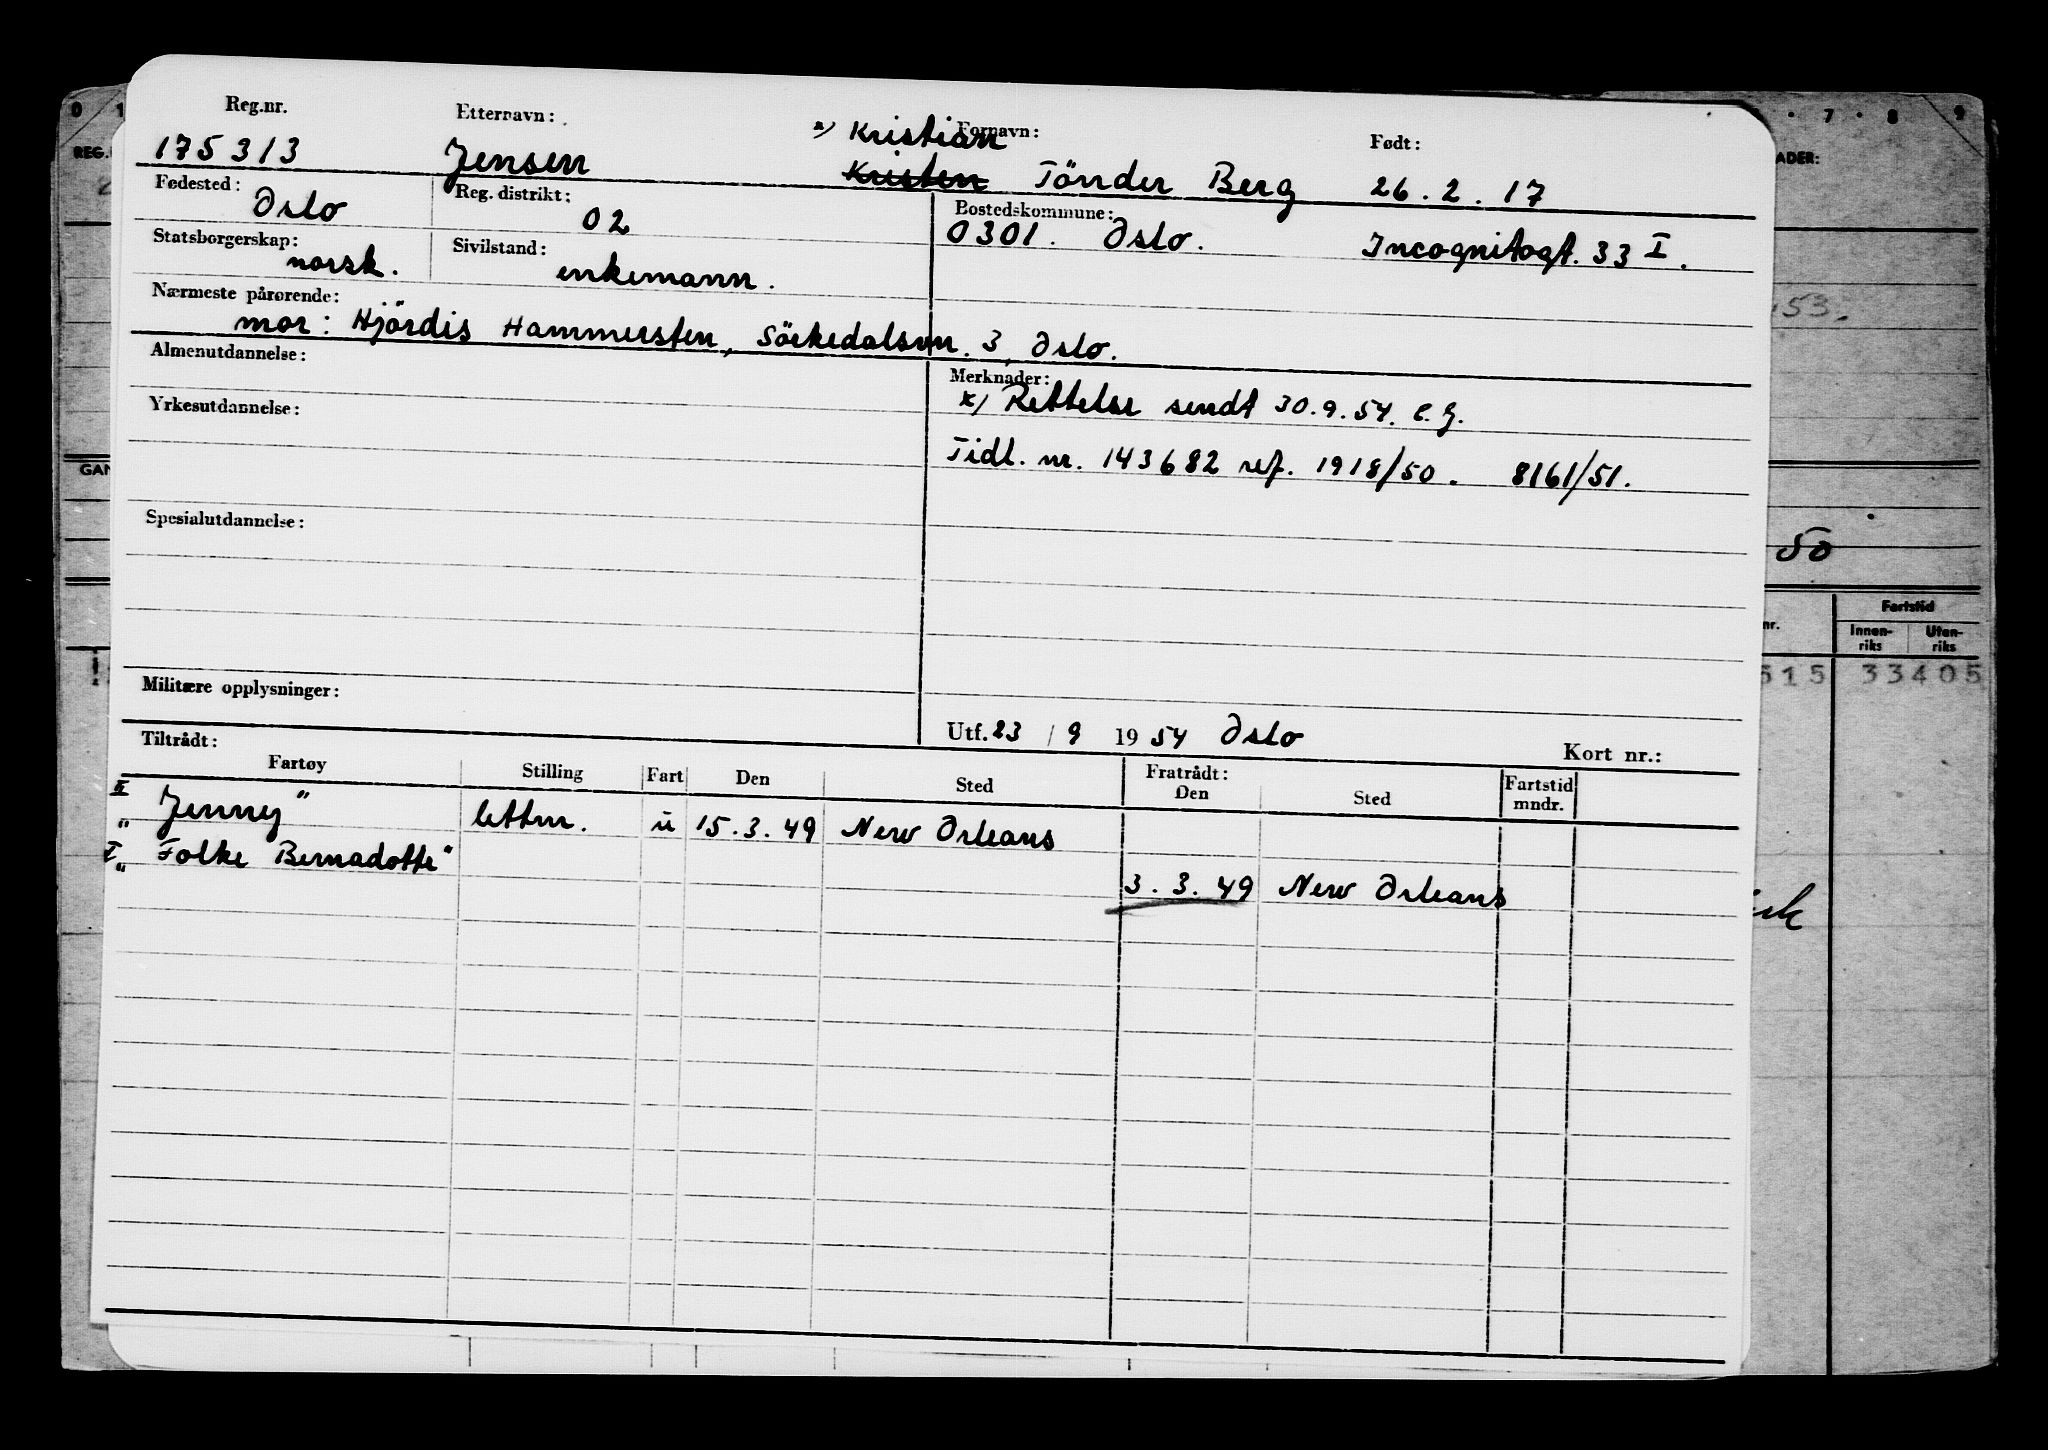 Reg.nr. Etternavn: Fornavn: Født:
x) Kristian
175313 Jensen Kristen Tönder Berg 26.2.17
Fødested: Oslo Reg. distrikt: 02 Bostedskommune: 0301. Oslo. Incognitogt. 33 I.
Statsborgerskap: norsk. Sivilstand: enkemann.
Nærmeste pårørende:
mor: Hjördis Hammersten, Sörkedalsvn. 3, Oslo.
Almenutdannelse:
Merknader:
x) Rettelse sendt 30.9.54. E.G.
Yrkesutdannelse:
Tidl. nr. 143682 ref. 1918/50. 8161/51.
Spesialutdannelse:
Militære opplysninger:
Utf. 23 / 9 1954 Oslo Kort nr.:
Tiltrådt: Fratrådt:
Fartøy Stilling Fart Den Sted Den Sted Fartstid mndr.
II "Jenny" lettm. u 15.3.49 New Orleans
I "Folke Bernadotte" 3.3.49 New Orleans
0 1 7 8 9
REG.
ADER:
53.
GAN
50
nr. Fartstid
Innen-riks Uten-riks
515 33405